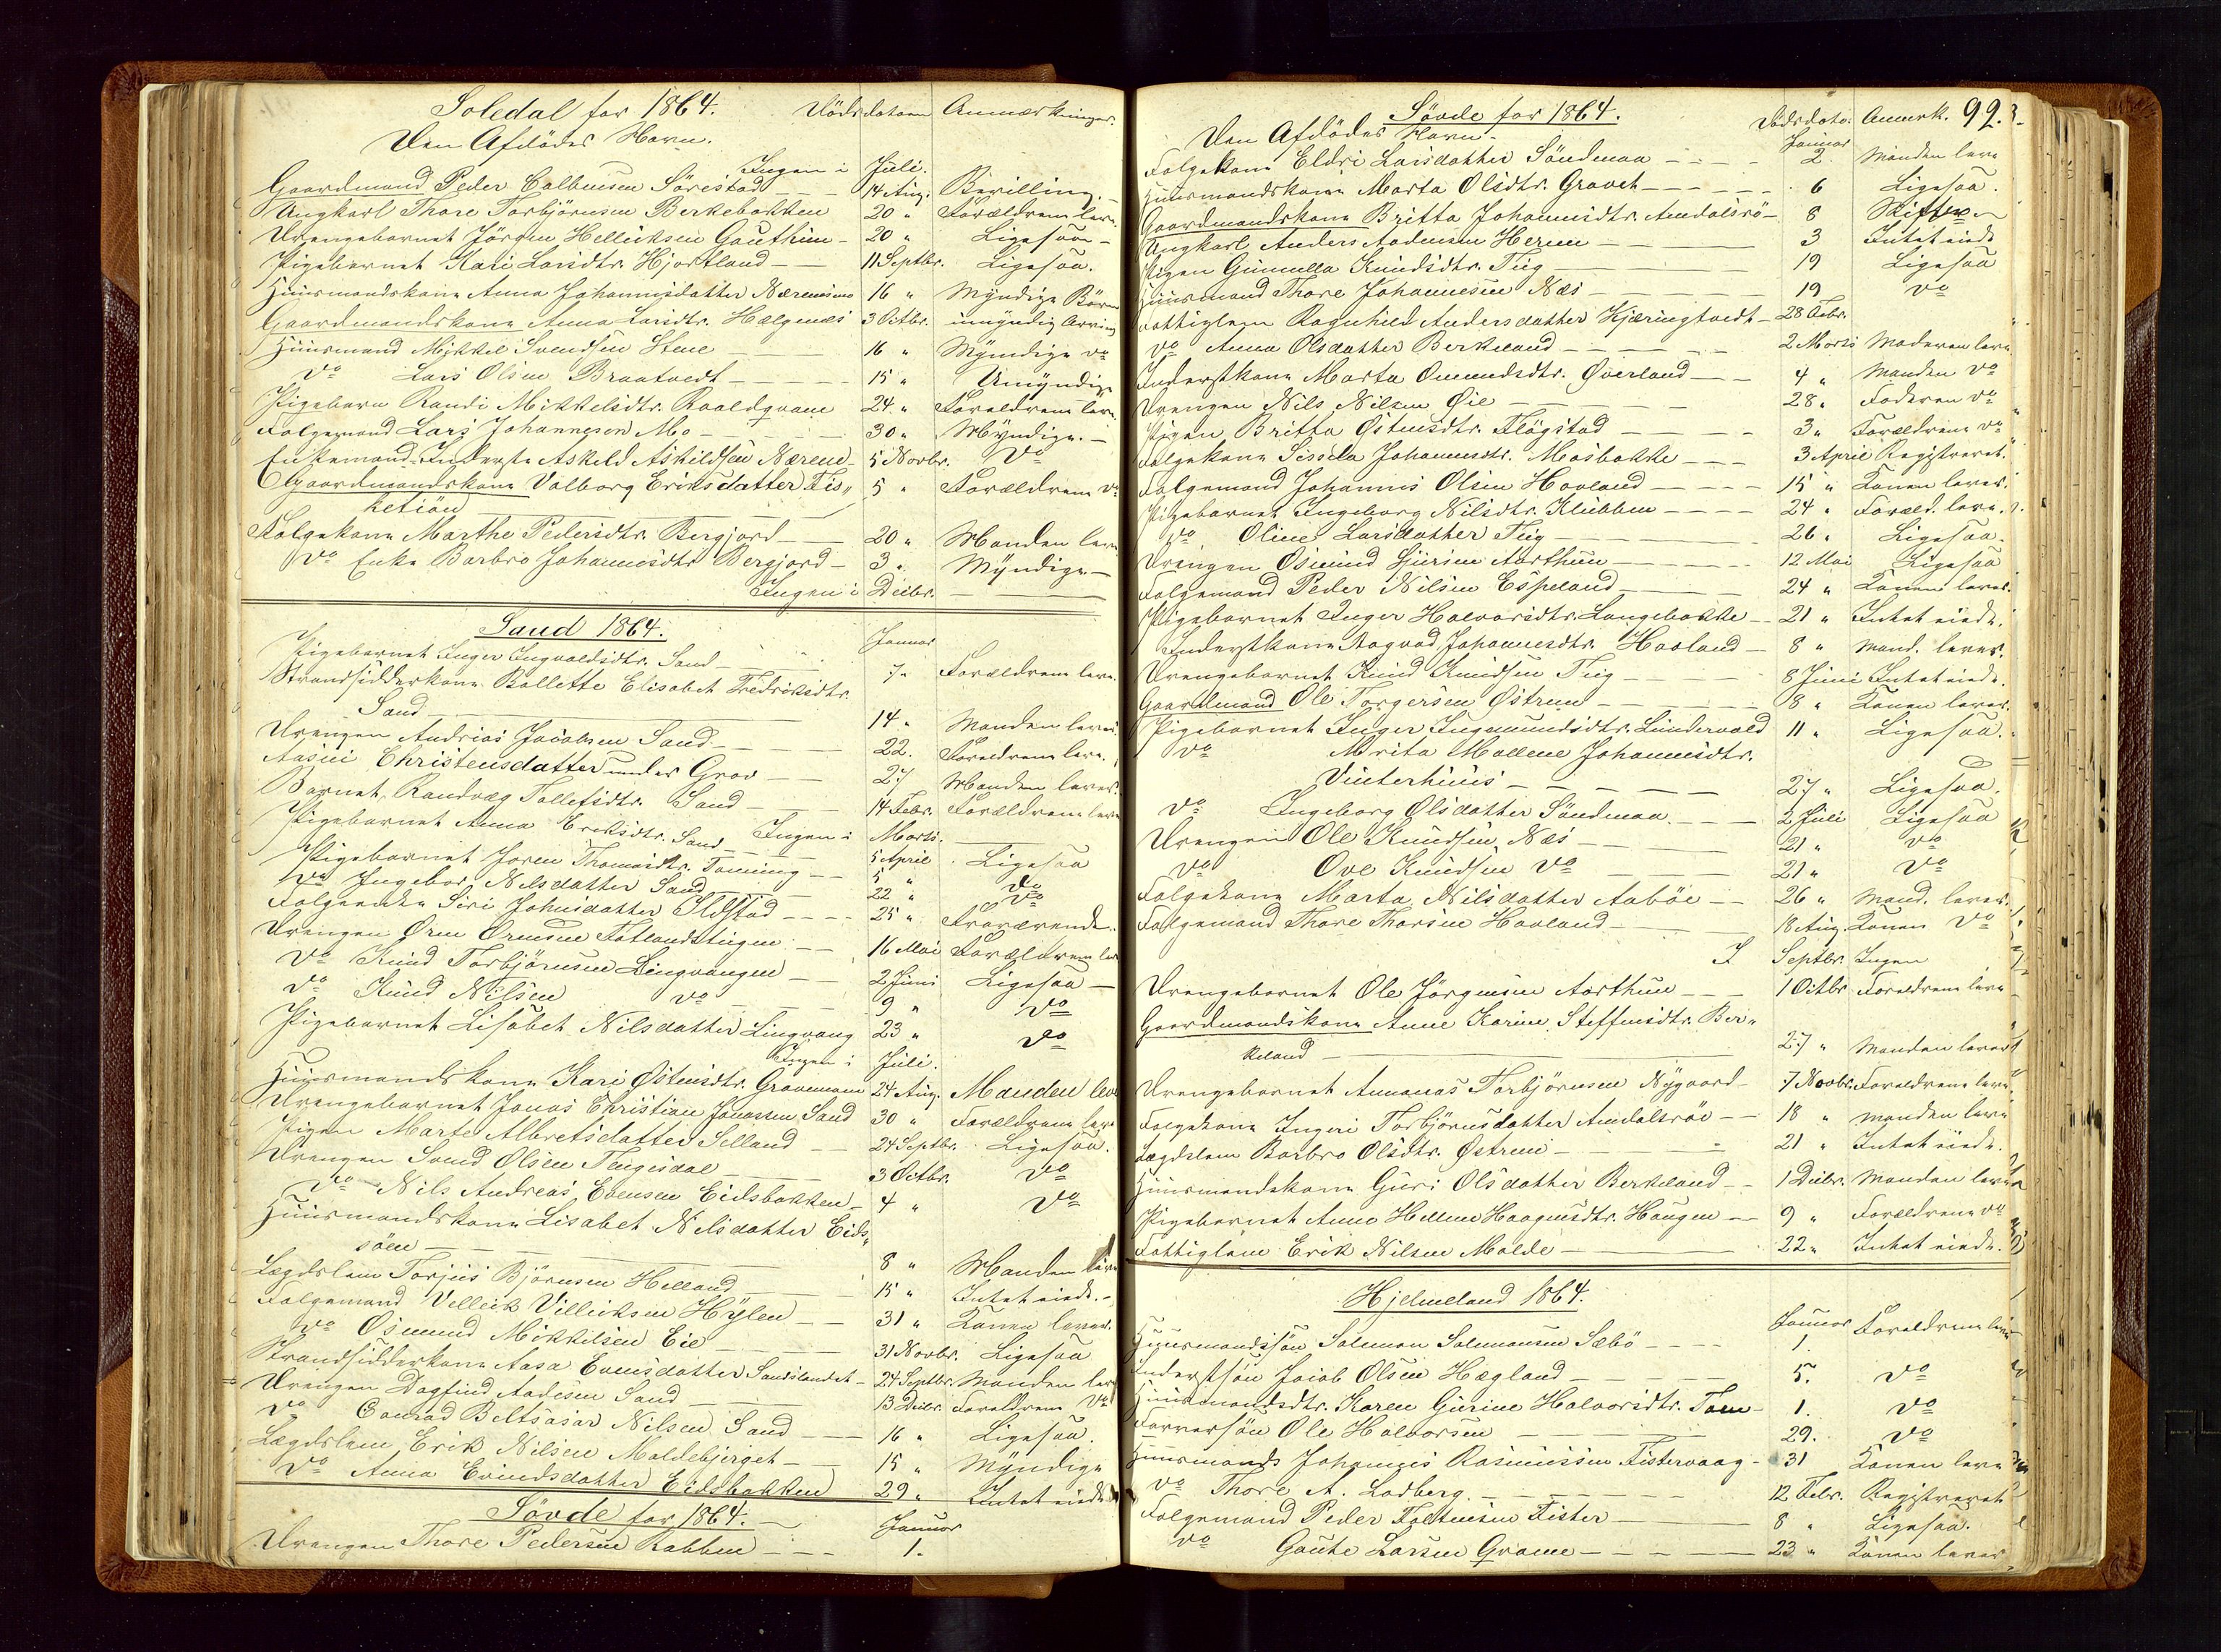 Soledal for 1864. Dödsdatum Anmærkninger.
Den Afdödes Navn.
Ingen i Juli.
Gaardmand Peder Colbensen Sörestad 14 Aug. Bevilling.
Ungkarl Thore Torbjörnsen Berkebakken 20 " Forældrene leve.
Drengebarnet Jörgen Helliksen Gauthun 20 " Ligesaa
Pigebarnet Kari Larsdtr. Hjortland 11 Septbr. Ligesaa.
Huusmandskone Anna Johannisdatter Næremimo 16 " Myndige Börn
Gaardmandskone Anna Larsdtr. Hælgenæs 3 Octbr. umyndig Arving
Huusmand Mikkel Svendsen Stene 16 " Myndige Do
Do Lars Olsen Braatvedt 15 " Umyndige
Pigebarn Randi Mikkelsdtr. Roaldqvam 24 " Forældrene leve.
Folgemand Lars Johannesen Mo 30 " Myndige.
Enkemand Inderste Askild Askildsen Nærene 5 Novbr. Do
Gaardmandskone Valborg Eriksdatter Fis„ 5 " Forældrene Do
ketiön
Folgekone Marthe Pedersdtr. Bergjord 20 " Manden leve
Do Enke Barbro Johannesdtr Bergjord 3 " Myndige
Ingen i Decbr.
Sand 1864.
Januar
Pigebarnet Inger Ingvaldsdtr. Sand 7 " Forældrene leve.
Strandsidderkone Bollette Elisabet Fredriksdtr.
Sand 14 " Manden lever.
Drengen Andrias Jacobsen Sand 22. Forældrene leve.
Aasni Christensdatter under Grov 27 Manden lever.
Barnet Randvæg Tollefsdtr. Sand 14 Febr. Forældrene leve
Pigebarnet Anna Eriksdtr. Sand Ingen i Marts.
Pigebarnet Joren Thomasdtr. Tonning 5 April Ligesaa
Do Ingebor Nilsdatter Sand 5 " Do
Folgeenke Siri Johnsdatter Ilstad 22 " Do
Drengen Orm Ormsen Fatlandstigen 25 " Fraværende.
Do Knud Torbjörnsen Lingvangen 16 Mai Forældrene leve
Do Knud Nilsen Do 2 Juni Ligesaa
9 " Do
Pigebarnet Lisabet Nilsdatter Lingvang 23 " Do
Ingen i Juli.
Huusmandskone Kari Östensdtr. Gravemoen 24 Aug. Manden leve
Drengebarnet Jonas Christian Jonassen Sand 30 " Forældrene leve
Pigen Marte Albretsdatter Selland 24 Septbr. Ligesaa.
Drengen Svend Olsen Tengesdal 3 Octbr. Do
Do Nils Andreas Evensen Eidsbakken 4 " Do
Huusmandskone Lisabet Nilsdatter Eids„
söen 8 " Manden leve
Lægdslem Torjus Björnsen Helland 15 " Intet eiede.
Folgemand Velleik Villeiksen Hylen 31 " Konen lever.
Do Osmund Mikkelsen Eie 31 Novbr. Ligesaa
Strandsidderkone Aasa Evensdatter Sandslandet 24 Septbr. Manden leve
Drengen Dagfind Aadesen Sand 13 Decbr. Forældrene Do
Do Conrad Beltsasar Nilsen Sand 16 " Ligesaa.
Lægdslem Erik Nilsen Moldebjerget 15 " Myndige
Do Anna Evindsdatter Eidsbakken 29 " Intet eiede
Sövde for 1864.
Januar
Drengen Thore Pedersen Rabben 1.
Sövde for 1864. Dödsdato. Anmerk. 99.
Den Afdödes Navn.
Januar
Folgekone Eldri Larsdatter Söndenaa 2. Manden leve
Huusmandskone Marta Olsdtr. Gravet 6 Ligesaa.
Gaardmandskone Britta Johannisdtr. Amdalsrö 8 Skifte
Ungkarl Anders Aadnesen Herem 3 Intet eiede
Pigen Gunnilla Knudsdtr. Tüg 19 Ligesaa
Huusmand Thore Johannesen Næs 19 Do
Fattiglem Ragnhild Andersdatter Kjæringtvedt 28 Febr.
Do Anna Olsdatter Berkeland 2 Marts Moderen leve.
Inderstkone Marta Omundsdtr. Överland 4 " Manden Do
Drengen Nils Nilsen Öie 28 " Faderen Do
Pigen Britta Östensdtr. Flögstad 3 " Forældrene Do
Folgekone Sissela Johannesdtr. Mosbakke 3 April Registreret.
Folgemand Johannis Olsen Hovland 15 " Konen lever.
Pigebarnet Ingeborg Nilsdtr. Klubben 24 " Foræld. leve.
Do Oline Larsdatter Tüg 26 " Ligesaa.
Drengen Osmund Sjursen Aarthun 12 Mai Ligesaa
Folgemand Peder Nilsen Espeland 24 " Konen lever.
Pigebarnet Inger Halvorsdtr. Langebakke 21 " Intet eiede.
Inderstkone Ragvad Johannesdtr. Havland 8 " Mand. lever.
Drengebarnet Knud Knudsen Tüg 8 Juni Intet eiede.
Gaardmand Ole Torgersen Östrem 8 " Konen lever.
Pigebarnet Inger Ingemundsdtr. Lundervold 11 " Ligesaa.
Do Mrita Mallene Johannisdtr.
Vinterhuus 27 " Ligesaa.
Do Ingeborg Olsdatter Söndenaa 2 Juli Ligesaa
Drengen Ole Knudsen Næs 21 " Do
Do Ove Knudsen Do 21 " Do
Folgekone Marta Nilsdatter Aaböe 26 " Mand. lever.
Folgemand Thore Thorsen Havland 18 Aug. Konen Do
I Septbr. Ingen
Drengebarnet Ole Jörgensen Aarthun 1 Octbr Forældrene leve
Gaardmandskone Anne Karine Steffensdtr. Ber„
keland 27 " Manden lever
Drengebarnet Ananias Torbjörnsen Nygaard 7 Novbr. Forældrene leve
Folgekone Ingeri Torbjörnsdatter Amdalsröe 18 " Manden leve
Lægdslem Barbro Olsdtr. Östrem 21 " Intet eiede.
Huusmandskone Guri Olsdatter Berkeland 1 Decbr. Manden leve
Pigebarnet Anne Hellene Haagensdtr. Haugen 9 " Forældrene Do
Fattiglem Erik Nilsen Molde 22 " Intet eiede.
Hjelmeland 1864.
Januar
Huusmandssön Salomon Salomonsen Sæbö 1. Forældrene leve
Inderstsön Jacob Olsen Hægland 5. Do
Huusmandsdtr. Karen Gurine Halvorsdtr. Tom 1. Do
Farversön Ole Halvorsen 29. Do
Huusmands Johannis Rasmussen Fistervaag 31 Konen leve
Do Thore A. Ladberg. 12 Febr. Registreret
Folgemand Peder Toltensen Fister 8 " Ligesaa.
Do Gaute Larsen Grame 23 " Konen lever